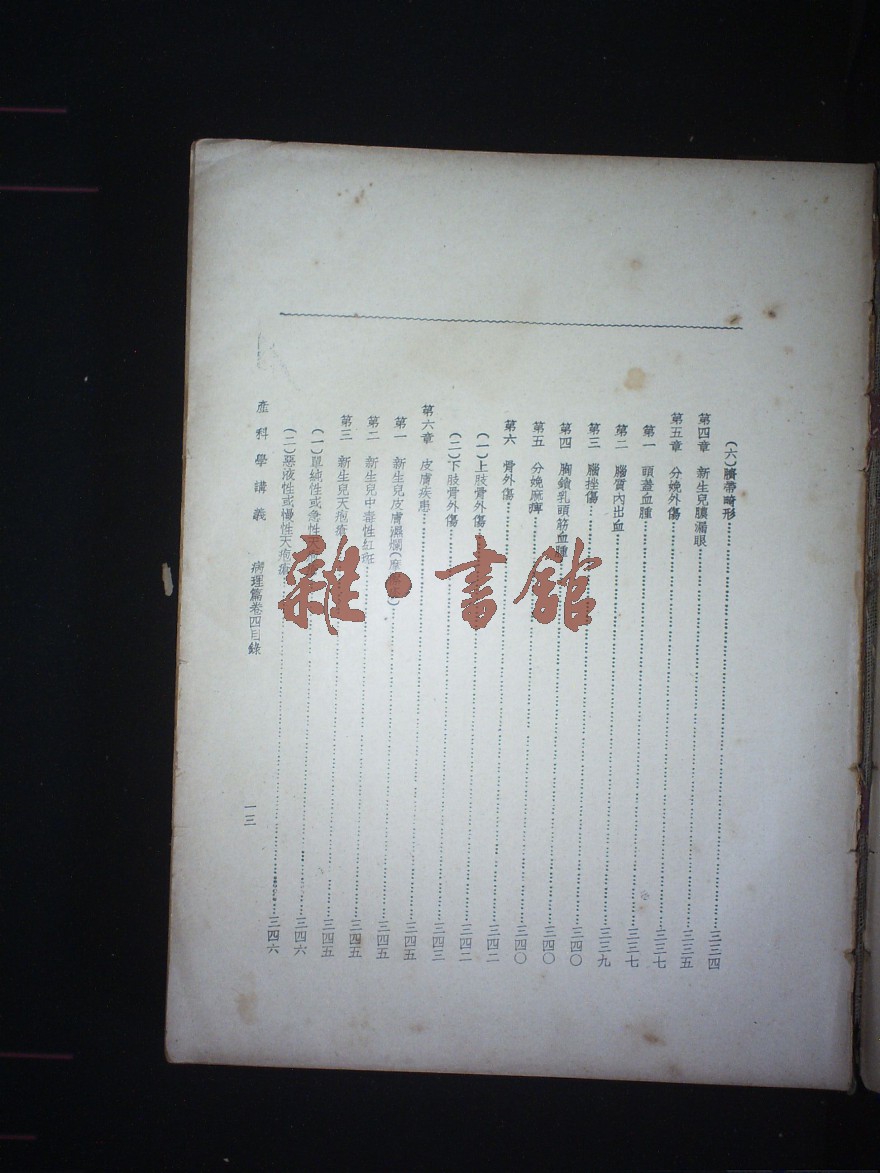 (六)臍帶畸形……三三四
第四章 新生兒膿漏眼……三三五
第五章 分娩外傷……三三七
第一 頭蓋血腫……三三七
第二 腦質內出血……三三九
第三 腦挫傷……三四〇
第四 胸鎖乳頭筋血腫……三四〇
第五 分娩麻痺……三四〇
第六 骨外傷……三四二
(一)上肢骨外傷……三四二
(二)下肢骨外傷……三四三
第六章 皮膚疾患……三四五
第一 新生兒皮膚濕爛……三四五
第二 新生兒中毒性紅斑……三四五
第三 新生兒天疱瘡……三四五
(一)單純性或急性天……三四六
(二)惡液性或慢性天疱瘡……三四六
產科學講義 病理篇卷四目錄 一三
雜·書館